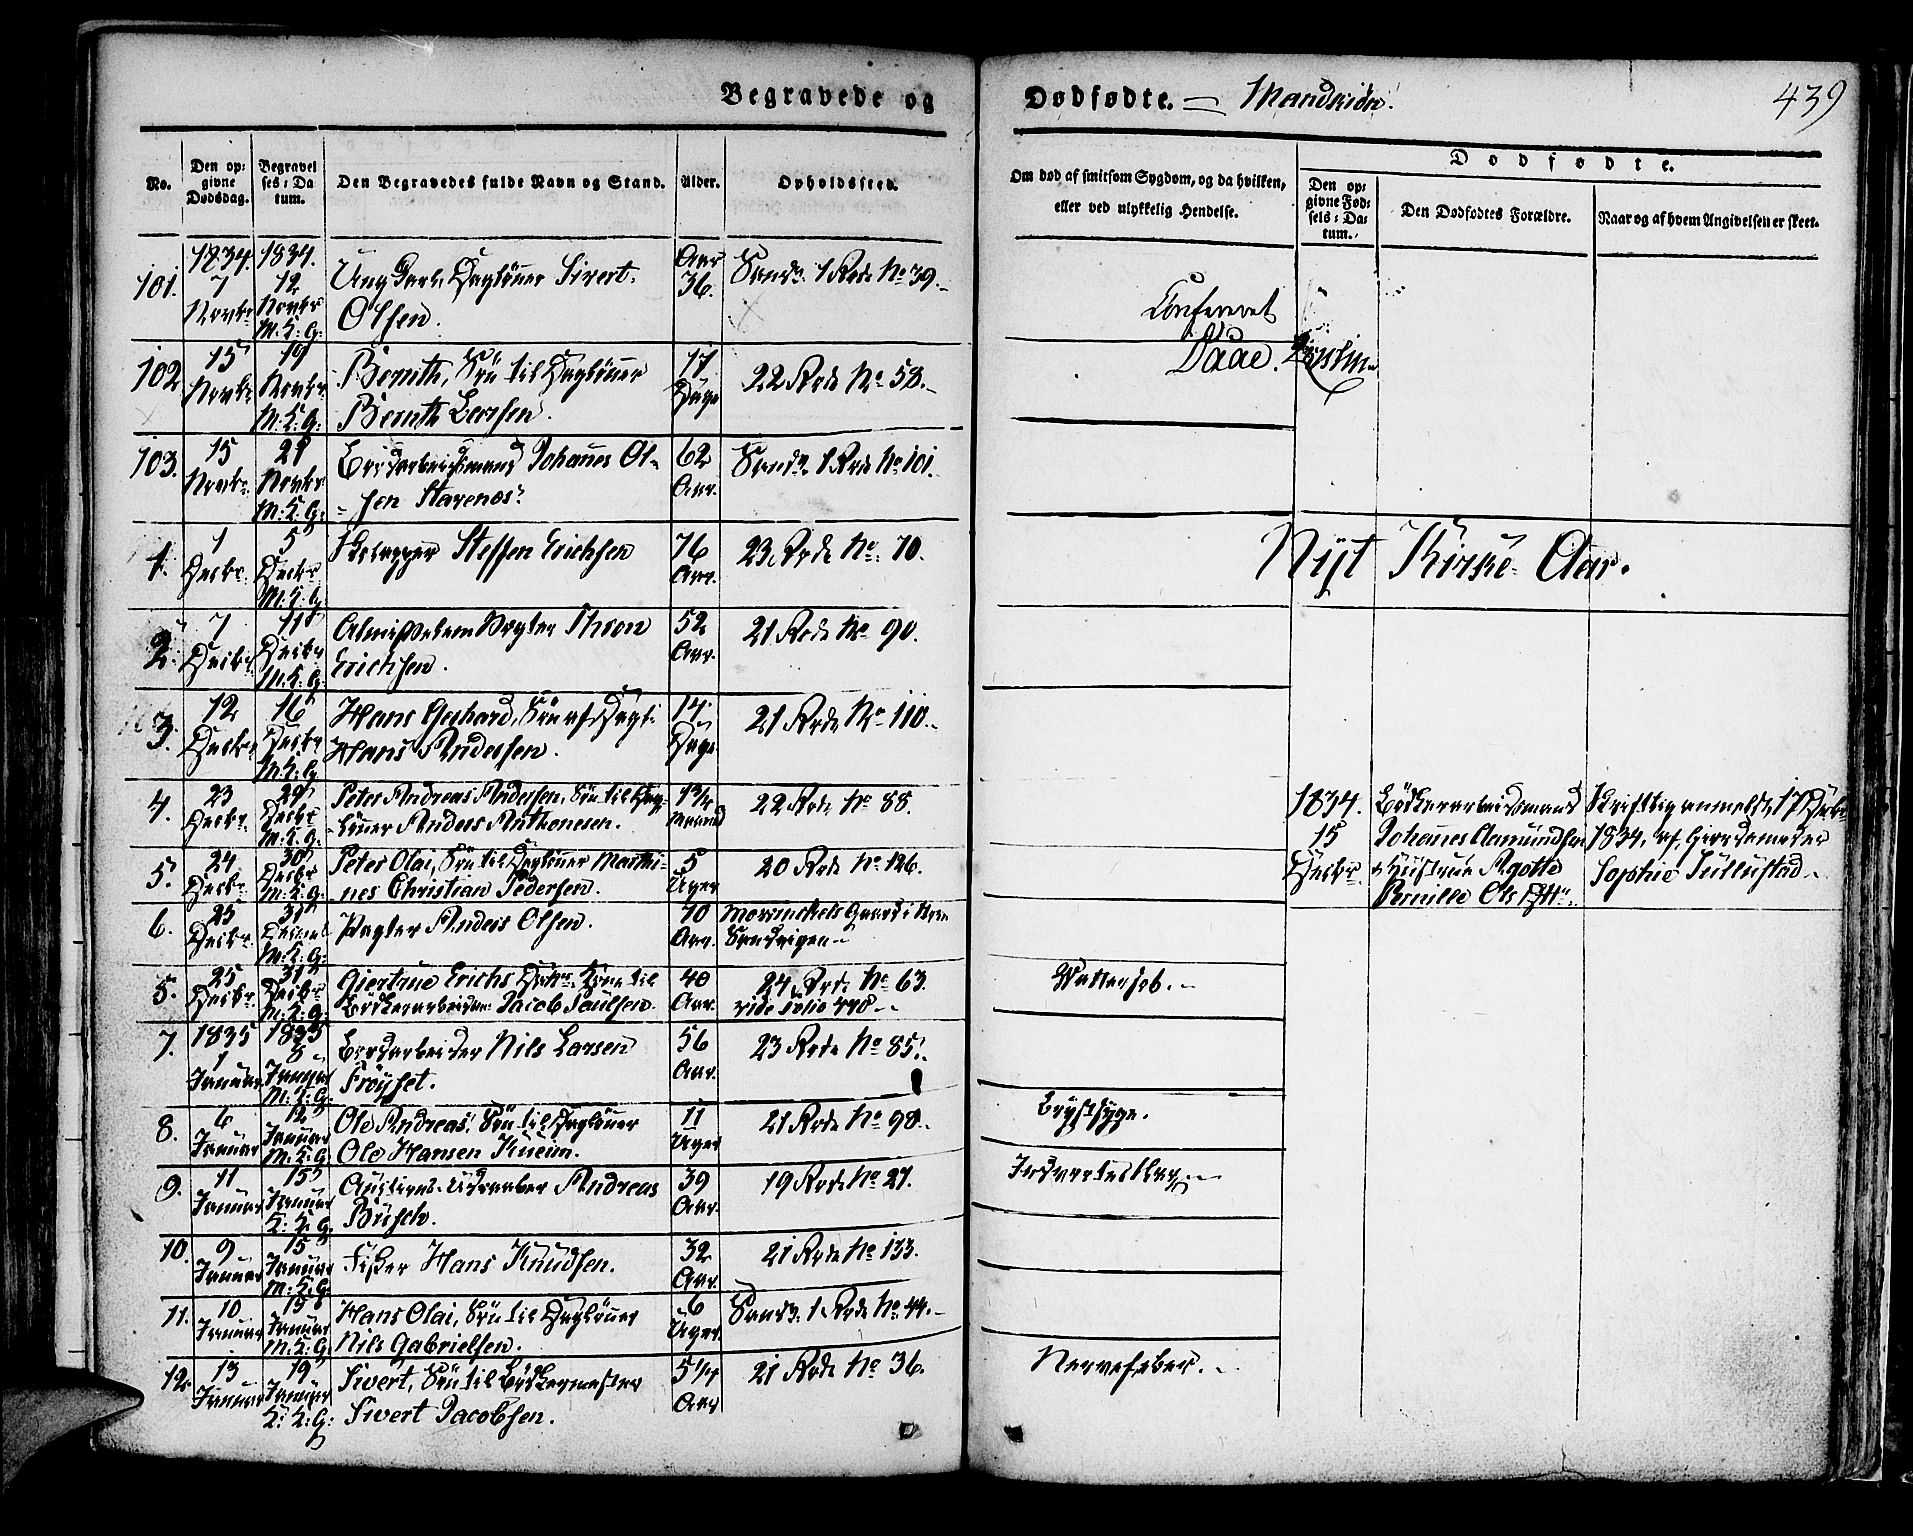 Begravede og
Dødfødte. — Mandkiøn.
439
No.
Den op-
givne
Dødsdag.
Begravel
ses-Da
tum.
Den Begravedes fulde Navn og Stand.
Alder.
Opholdssted.
Om død af smitsom Sygdom, og da hvilken,
eller ved ulykkelig Hendelse.
Dødfødte.
Den op-
givne Fød-
sels-Da-
tum.
Den Dødfødtes Forældre.
Naar og af hvem Angivelsen er skeet.
101.
1834. 7 Novbr
1834. 12 Novbr M: K: G:
Ung Karl. Dagløner Sivert
Olsen.
Aar 36.
Sandv. 1 Rode No 39.
Confereret
Daae.
102
15 Novbr
19 Novbr M: K: G:
Bernth, Søn til Dagløner
Bernth Larsen.
17 Dage
22 Rode No 58.
103.
15 Novbr
21 Novbr M: K: G:
Johanes Ol-
sen Stavenes
62 Aar.
Sandv. 1 Rode No 101.
1.
1 Decbr.
5 Decbr M: K: G
Steffen Erichsen
76 Aar.
23 Rode No 70.
Nyt Kirke Aar.
2.
7 Decbr
11 Decbr M: K: G:
Thron
Erichsen.
52 Aar.
21 Rode No 90.
3.
12 Decbr
16 Decbr M: K: G
Hans Gerhard, Søn af Dagl:
Hans Andersen.
14 Dage
21 Rode No 110.
4.
23 Decbr.
29 Decbr M: K: G:
Peter Andreas Andersen, Søn til Dag-
løner Anders Anthonesen.
1 3/4 Maaned
22 Rode No 88.
1834. 15 Decbr.
Bødkerarbeidsmand
Johanes Aamundsen
& Hustrue Agotte
Pernille Ols Dtr.
Skriftlig anmeldt 17 Decbr
1834, af Giordemoder
Sophie Tullustad
5.
24 Decbr
30 Decbr M: K: G:
Peter Olai, Søn til Dagløner Marthi-
nes Christian Pedersen.
5 Uger
20 Rode No 126.
6.
23 Decbr.
31 M: K: G:
Anders Olsen.
70 Aar.
Gaard i Store
Sandvigen
5.
25 Decbr.
31 Decbr M: K: G:
Giertrue Erichs Datter, Kone til
Bødkerarbeider Jacob Paulsen.
40 Aar.
24 Rode No 63.
vide Folio 440
Vattersot.
7.
1835 1 Januar
1835 8 Januar M: K: G:
Nils Larsen
Frøyset.
56 Aar.
23 Rode No 85.
8.
6 Januar
12 Januar M: K: G:
Ole Andreas, Søn til Dagløner
Ole Hansen
11 Uger
21 Rode No 98.
Brystsyge.
9.
11 Januar
15 Januar K: K: G.
Auctions Udraaber Andreas
Büsch.
39 Aar.
19 Rode No 27.
10.
9 Januar
15 Januar M: K: G:
Fisker Hans Knudsen.
32 Aar.
21 Rode No 133.
11.
10 Januar
15 Januar M: K: G:
Hans Olai, Søn til Dagløner
Nils Gabrielsen.
6 Uger
Sandv. 1 Rode No 44.
12.
13 Januar
19 Januar K: K: G:
Sivert, Søn til Bødkermester
Sivert Jacobsen.
5 1/4 Aar
21 Rode No 36.
Nervefeber.